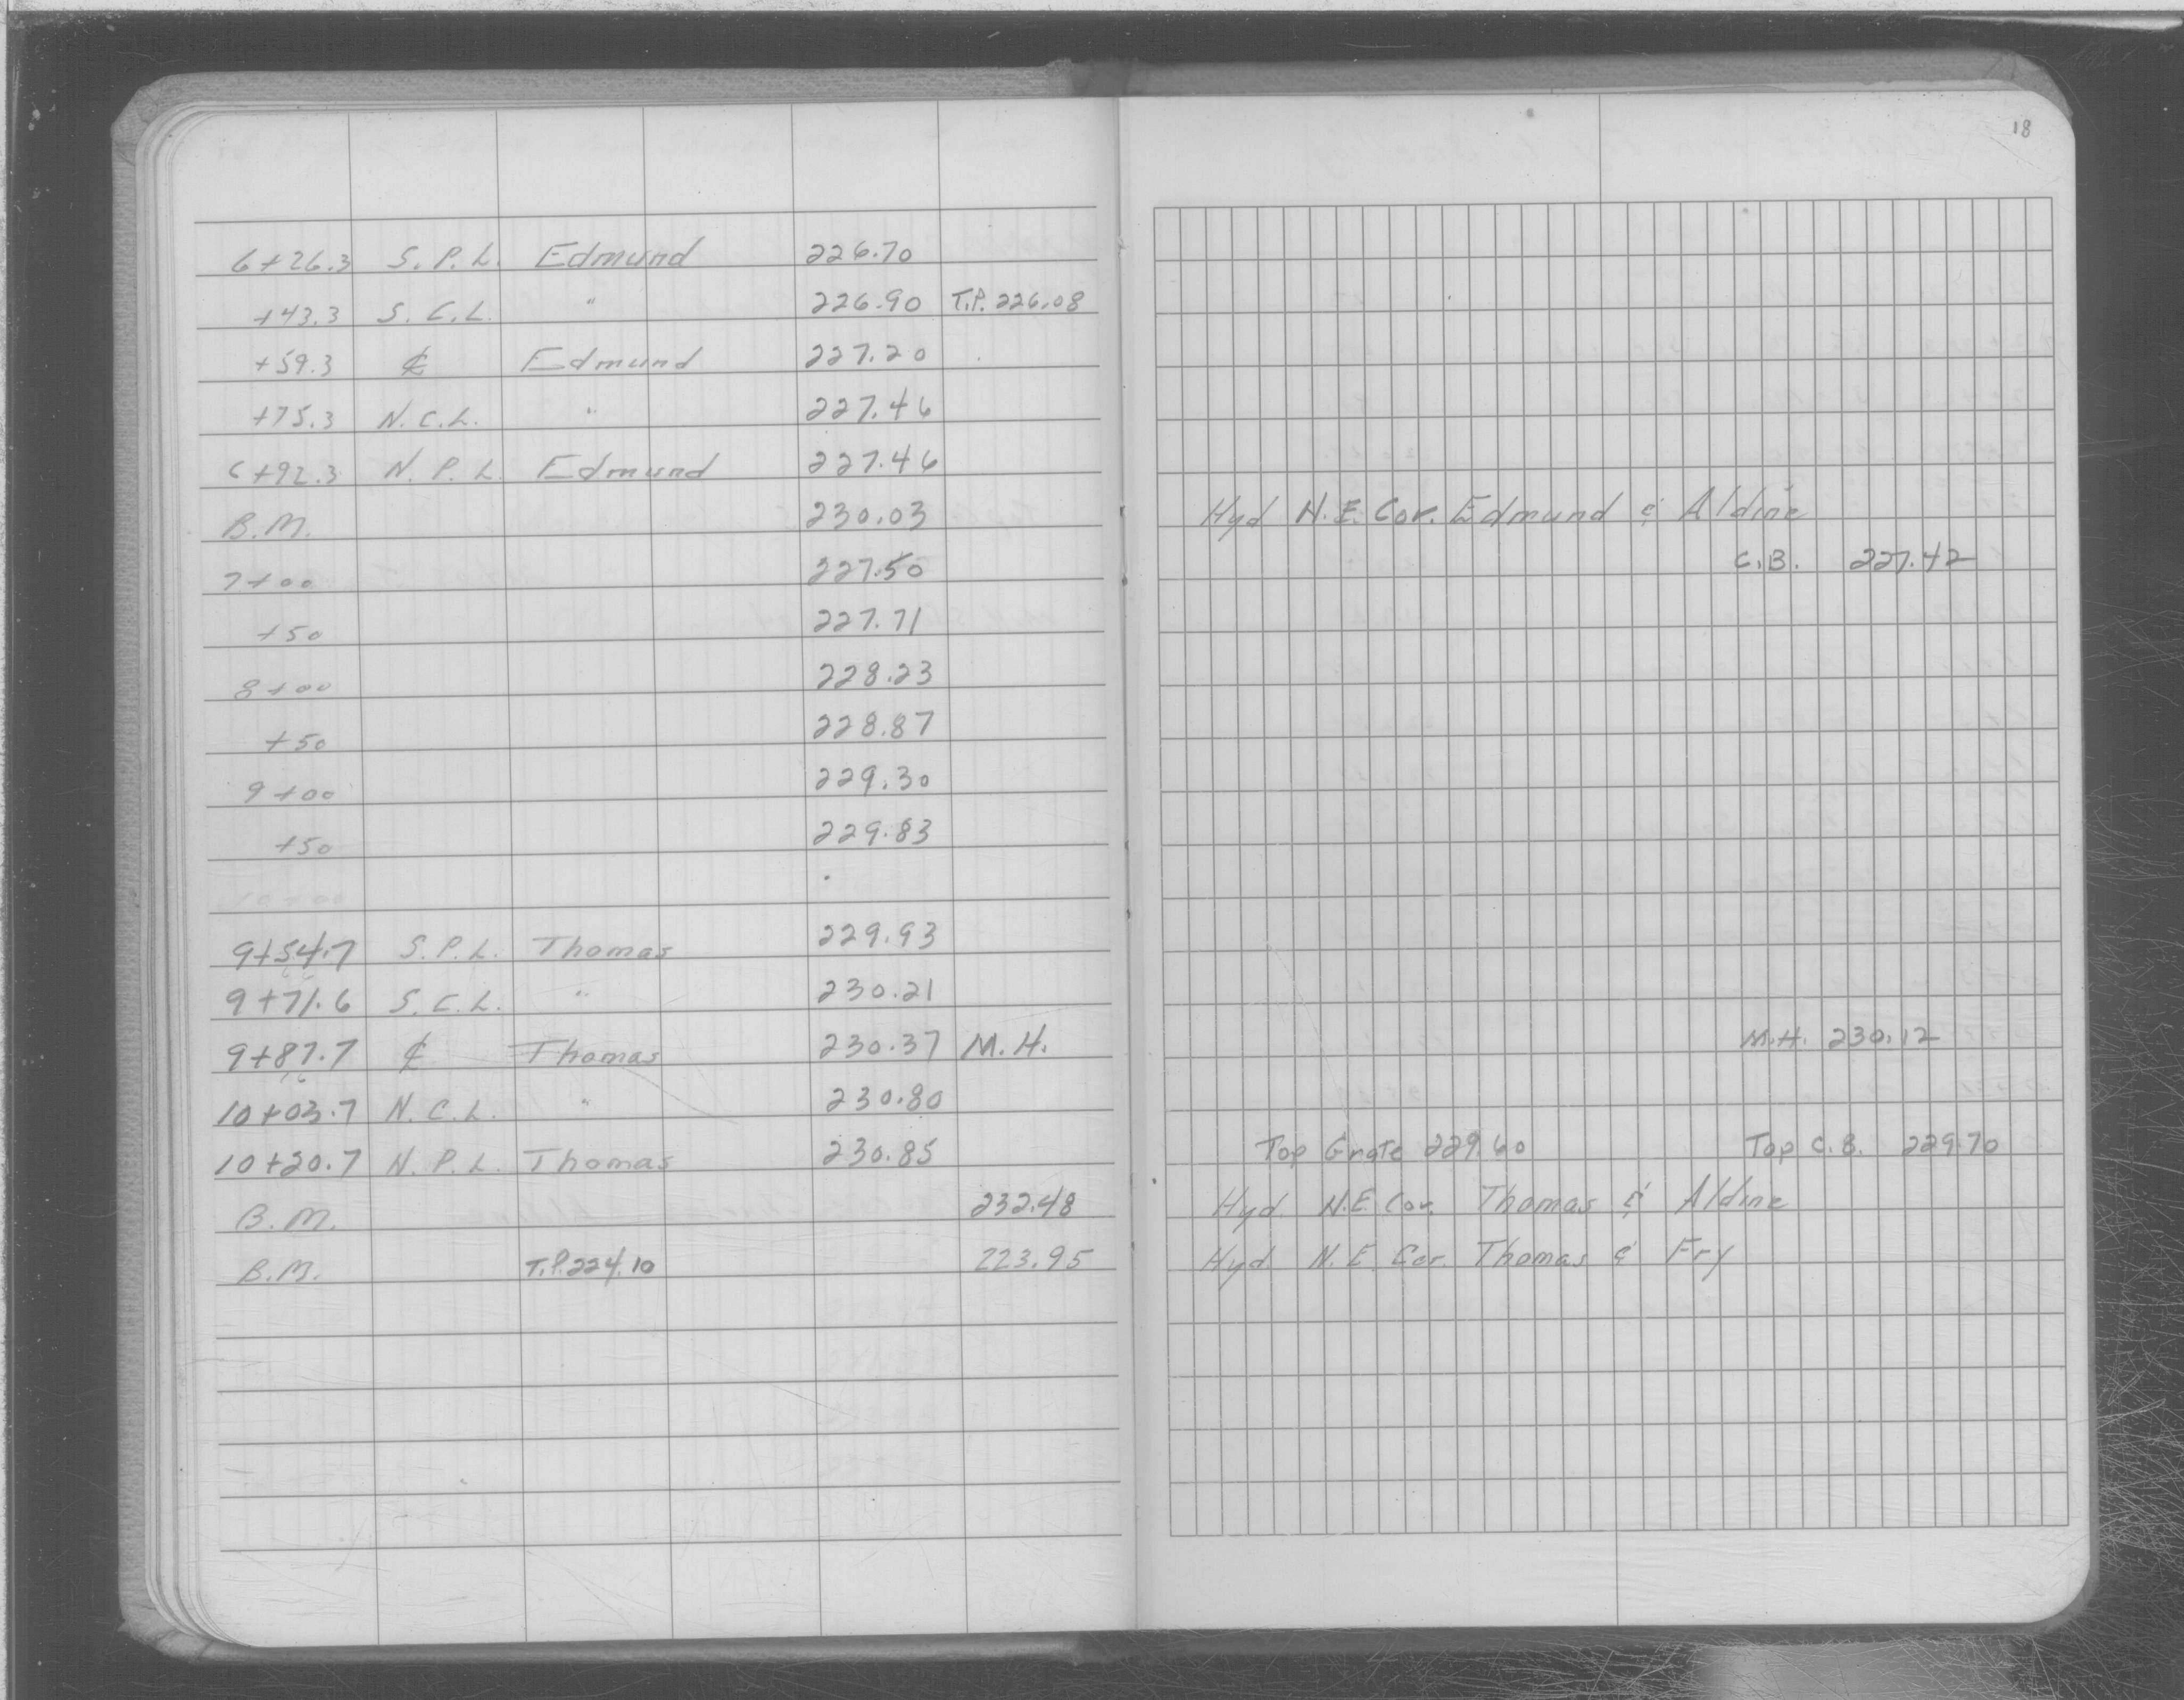 18
6+26.3 S.P.L. Edmund 226.70
+43.3 S.C.L. " 226.90 T.P. 226.08
+59.3 ℄ Edmund 227.20
+75.3 N.C.L. " 227.46
6+92.3 N.P.L. Edmund 227.46
B.M. 230.03 Hyd N.E. Cor. Edmund & Aldine
7+00 227.50 C.B. 227.42
+50 227.71
8+00 228.23
+50 228.87
9+00 229.30
+50 229.83
10+00
9+54.7 S.P.L. Thomas 229.93
9+71.6 S.C.L. " 230.21
9+87.7 ℄ Thomas 230.37 M.H. M.H. 230.12
10+03.7 N.C.L. " 230.80
10+20.7 N.P.L. Thomas 230.85 Top Grate 229.60 Top C.B. 229.70
B.M. 232.48 Hyd N.E. Cor. Thomas & Aldine
B.M. T.P. 224.10 223.95 Hyd N.E. Cor. Thomas & Fry